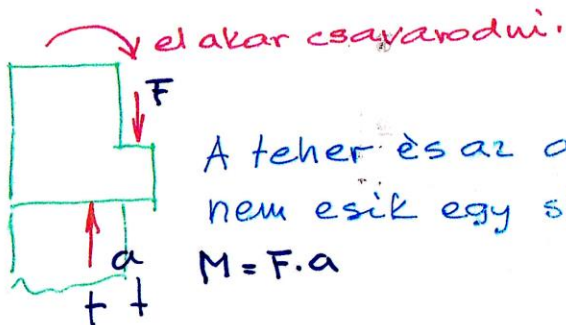 el akar csavarodni.
F
A teher és az
nem esik egy
a
M = F.a